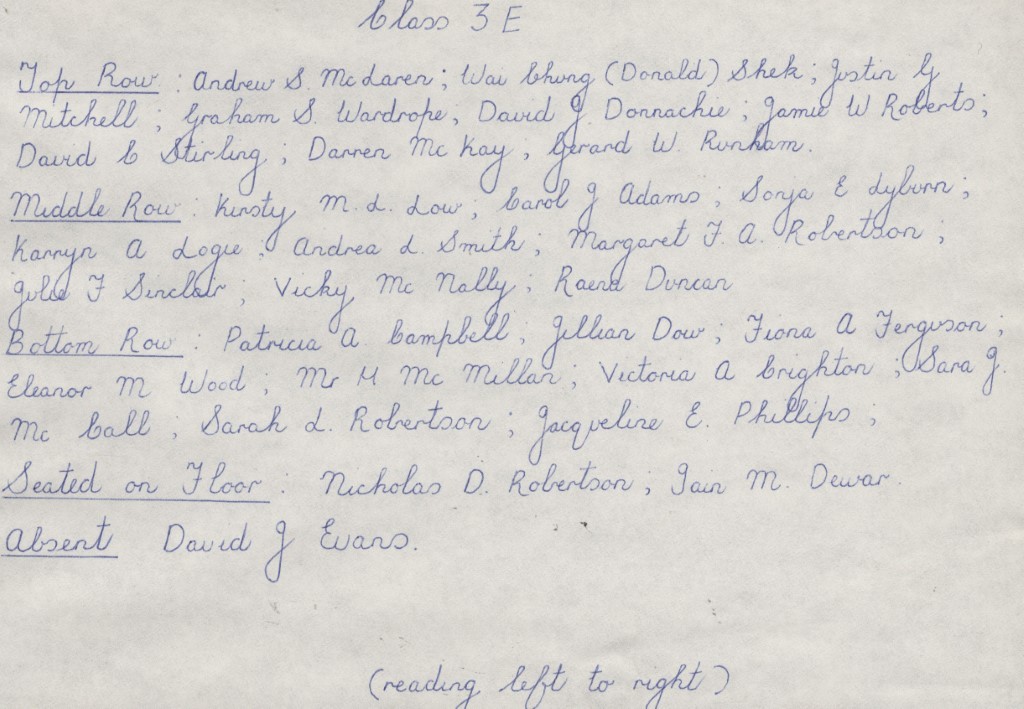 Class 3 E
Top Row : Andrew S. McLaren; Wai Chung (Donald) Shek; Justin G
Mitchell ; Graham S. Wardrope, David J. Donnachie ; Jamie W Roberts;
David C Stirling ; Darren McKay , Gerard W. Runham.
Middle Row : Kirsty M. L. Low, Carol J Adams ; Sonja E Lyburn ;
Karryn A Logie ; Andrea L. Smith ; Margaret F. A. Robertson ;
Julie F Sinclair ; Vicky Mc Nally ; Raena Duncan
Bottom Row : Patricia A. Campbell ; Jillian Dow ; Fiona A Ferguson ;
Eleanor M Wood ; Mr M Mc Millan ; Victoria A Crighton ; Sara J.
Mc Call ; Sarah L. Robertson ; Jacqueline E. Phillips ;
Seated on Floor : Nicholas D. Robertson ; Iain M. Dewar.
Absent David J Evans.
(reading left to right)